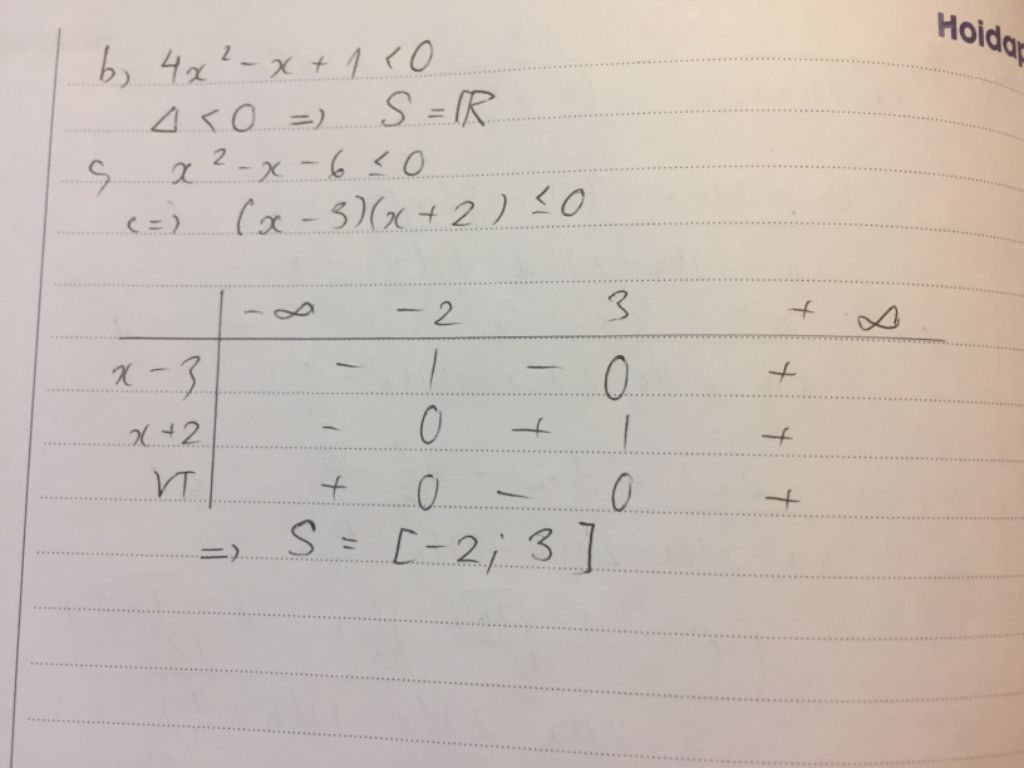 Hoidap
b, 4x² - x + 1 < 0
Δ < 0 => S = ℝ
c, x² - x - 6 ≤ 0
<=> (x - 3)(x + 2) ≤ 0
-∞ -2 3 +∞
x - 3 - | - 0 +
x + 2 - 0 + | +
VT + 0 - 0 +
=> S = [-2; 3]